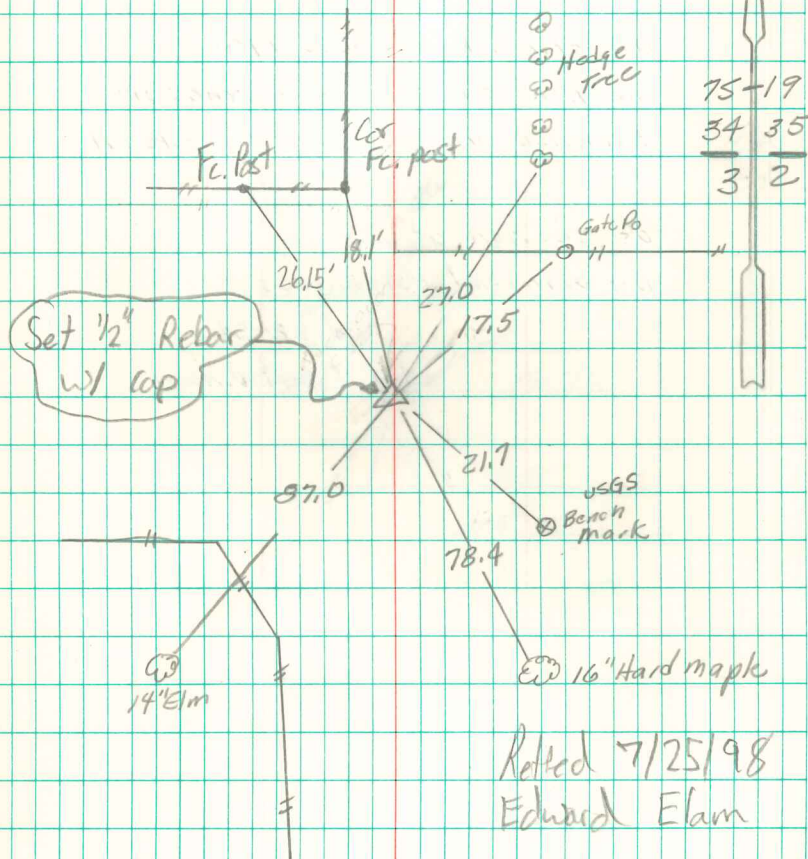 Hedge
Tree
75 19
34 35
3 2
Cor
Fc. Post
Fc. post
Gate Po
18.1'
26.15'
27.0
17.5
Set 1/2" Rebar
w/ cap
21.7
87.0
USGS
Bench
mark
78.4
16" Hard maple
14" Elm
7/25/98
Edward Elam